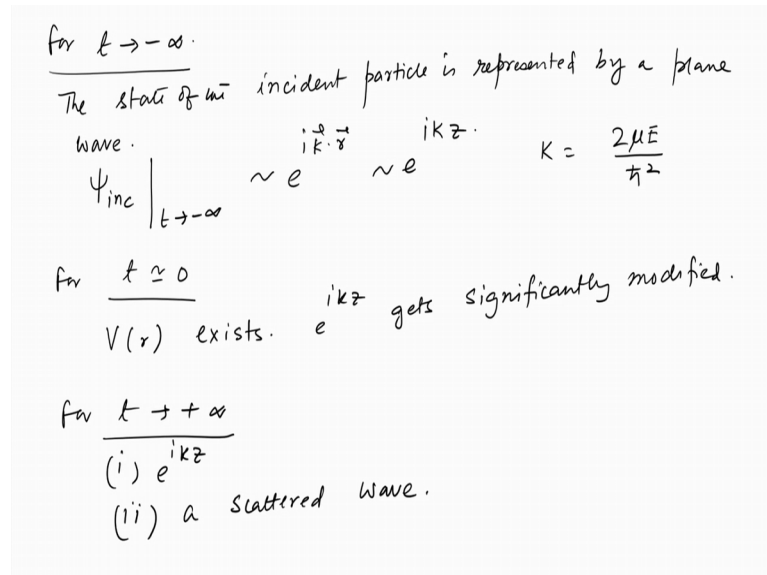 for t → -∞.
The state of the incident particle is represented by a plane
wave.
ψ_inc |_{t→-∞} ~ e^{i\vec{k}·\vec{r}} ~ e^{ikz}. K = 2μE/ħ²
for t ≃ 0
V(r) exists. e^{ikz} gets significantly modified.
for t → +∞
(i) e^{ikz}
(ii) a scattered wave.